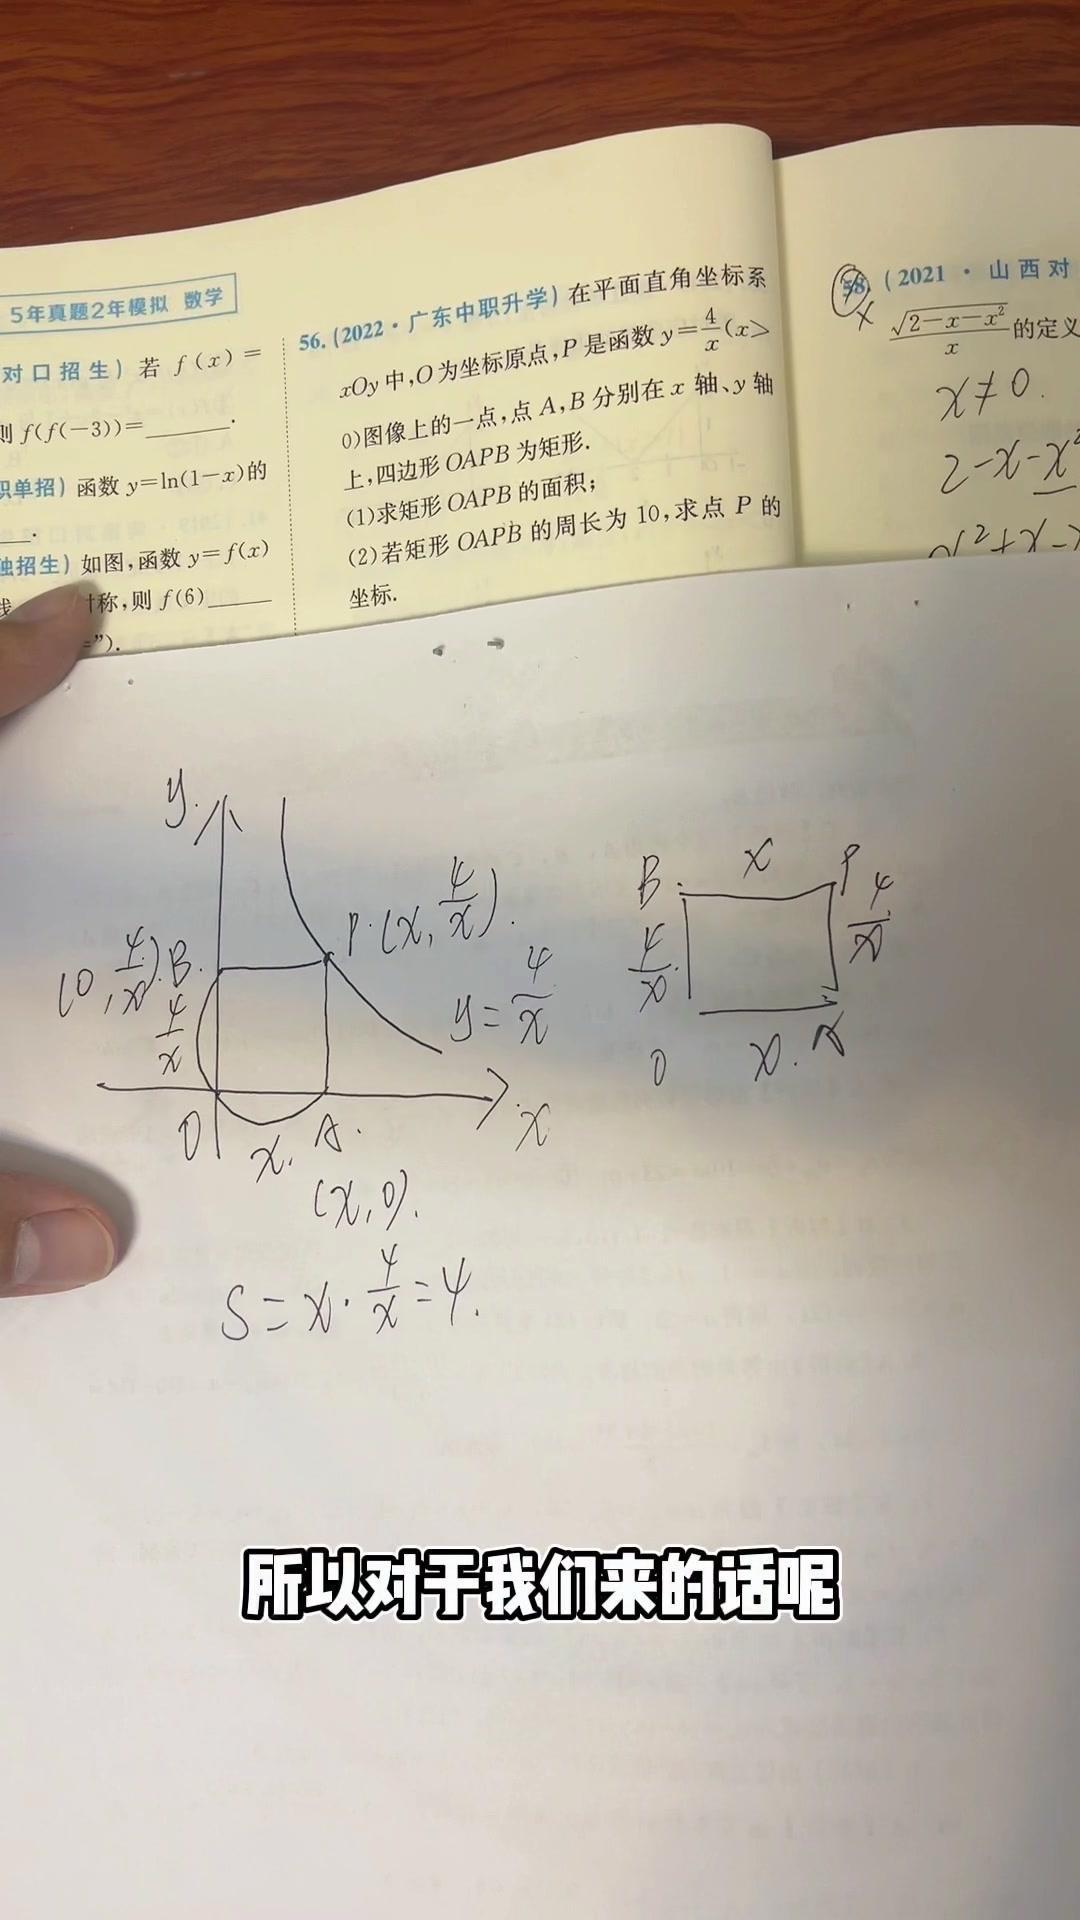 5年真题2年模拟 数学
对口招生) 若 f(x)=
则 f(f(-3))=________.
职单招) 函数 y=ln(1-x)的
___.
独招生) 如图,函数 y=f(x)
对称,则 f(6)_____
=").
56.(2022·广东中职升学)在平面直角坐标系
xOy中,O为坐标原点,P是函数 y=4/x(x>
0)图像上的一点,点A,B分别在x轴、y轴
上,四边形OAPB为矩形.
(1)求矩形OAPB的面积;
(2)若矩形OAPB的周长为10,求点P的
坐标.
58.(2021·山西对
√(2-x-x²)/x 的定义
x≠0.
2-x-x²
y.
P.(x, 4/x).
(0, 4/x).B.
4/x
y=4/x
O
x. A.
x
(x,0).
B. x P
4/x 4/x
O x. A
S=x·4/x=4.
所以对于我们来的话呢